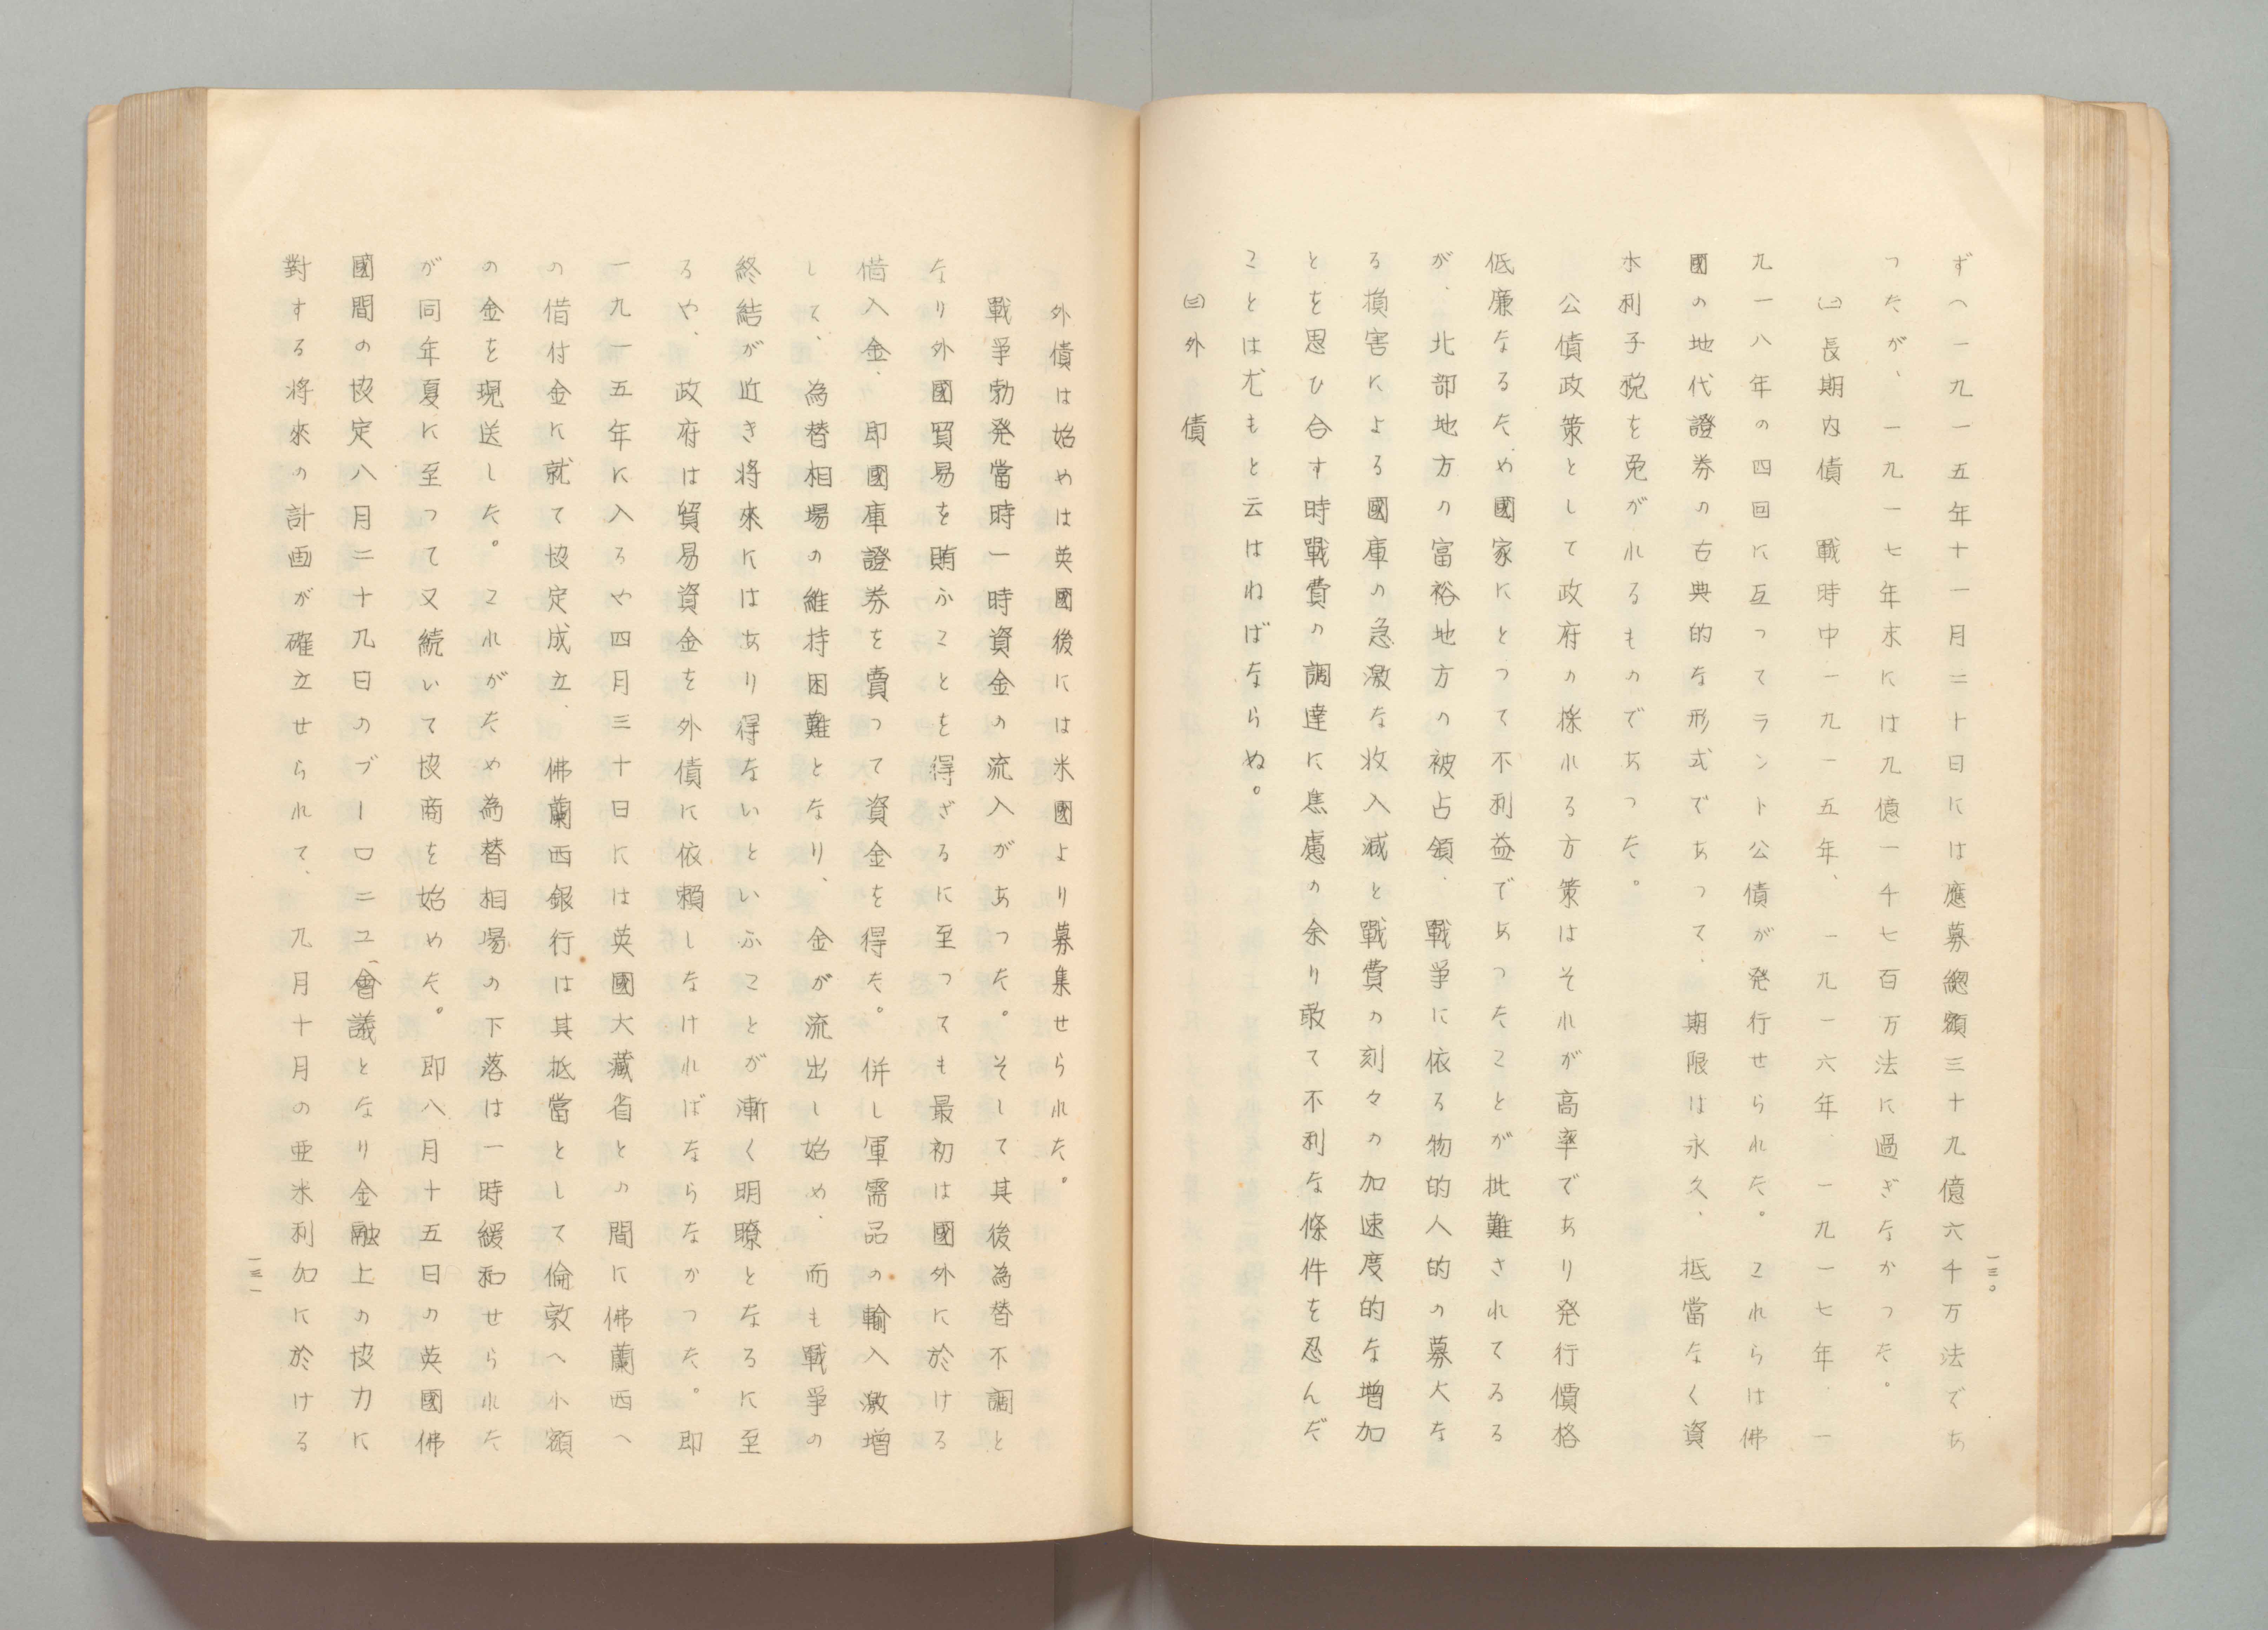 ずへ一九一五年十一月二十日には應募總額三十九億六千万法であ
つたが、一九一七年末には九億一千七百万法に過ぎなかつた。
㈡長期内債　戰時中一九一五年、一九一六年、一九一七年、一
九一八年の四回に亙つてラント公債が発行せられた。これらは佛
國の地代證券の古典的な形式であつて、期限は永久、抵當なく資
本利子税を免がれるものであつた。
公債政策として政府の採れる方策はそれが高率であり発行價格
低廉なるため國家にとつて不利益であつたことが批難されてるる
が、北部地方の富裕地方の被占領、戰爭に依る物的人的の募大な
る損害による國庫の急激な收入減と戰費の刻々の加速度的な増加
とを思ひ合す時戰費の調達に焦慮の余り敢て不利な條件を忍んだ
ことは尤もと云はねばならぬ。
㈢外　債
一三〇
外債は始めは英國後には米國より募集せられた。
戰爭勃発當時一時資金の流入があつた。そして其後為替不調と
なり外國貿易を賄ふことを得ざるに至つても最初は國外に於ける
借入金、即國庫證券を賣つて資金を得た。併し軍需品の輸入激増
して、為替相場の維持困難となり、金が流出し始め、而も戰爭の
終結が近き將來にはあり得ないといふことが漸く明瞭となるに至
るや、政府は貿易資金を外債に依頼しなければならなかつた。即
一九一五年に入るや四月三十日には英國大藏省との間に佛蘭西へ
の借付金に就て協定成立、佛蘭西銀行は其抵當として倫敦へ小額
の金を現送した。これがため為替相場の下落は一時緩和せられた
が同年夏に至つて又続いて協商を始めた。即八月十五日の英國佛
國間の協定八月二十九日のブーロニユ會議となり金融上の協力に
對する將來の計画が確立せられて、九月十月の亜米利加に於ける
一三一